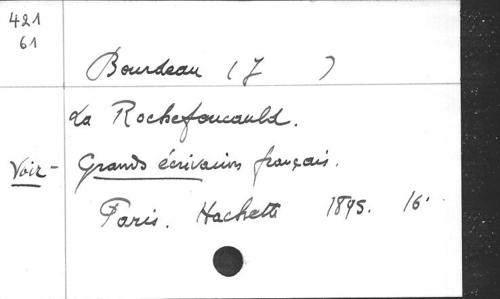 421
61
Bourdeau (J )
La Rochefoucauld.
Voir - Grands écrivains français.
Paris. Hachette 1895. 16.